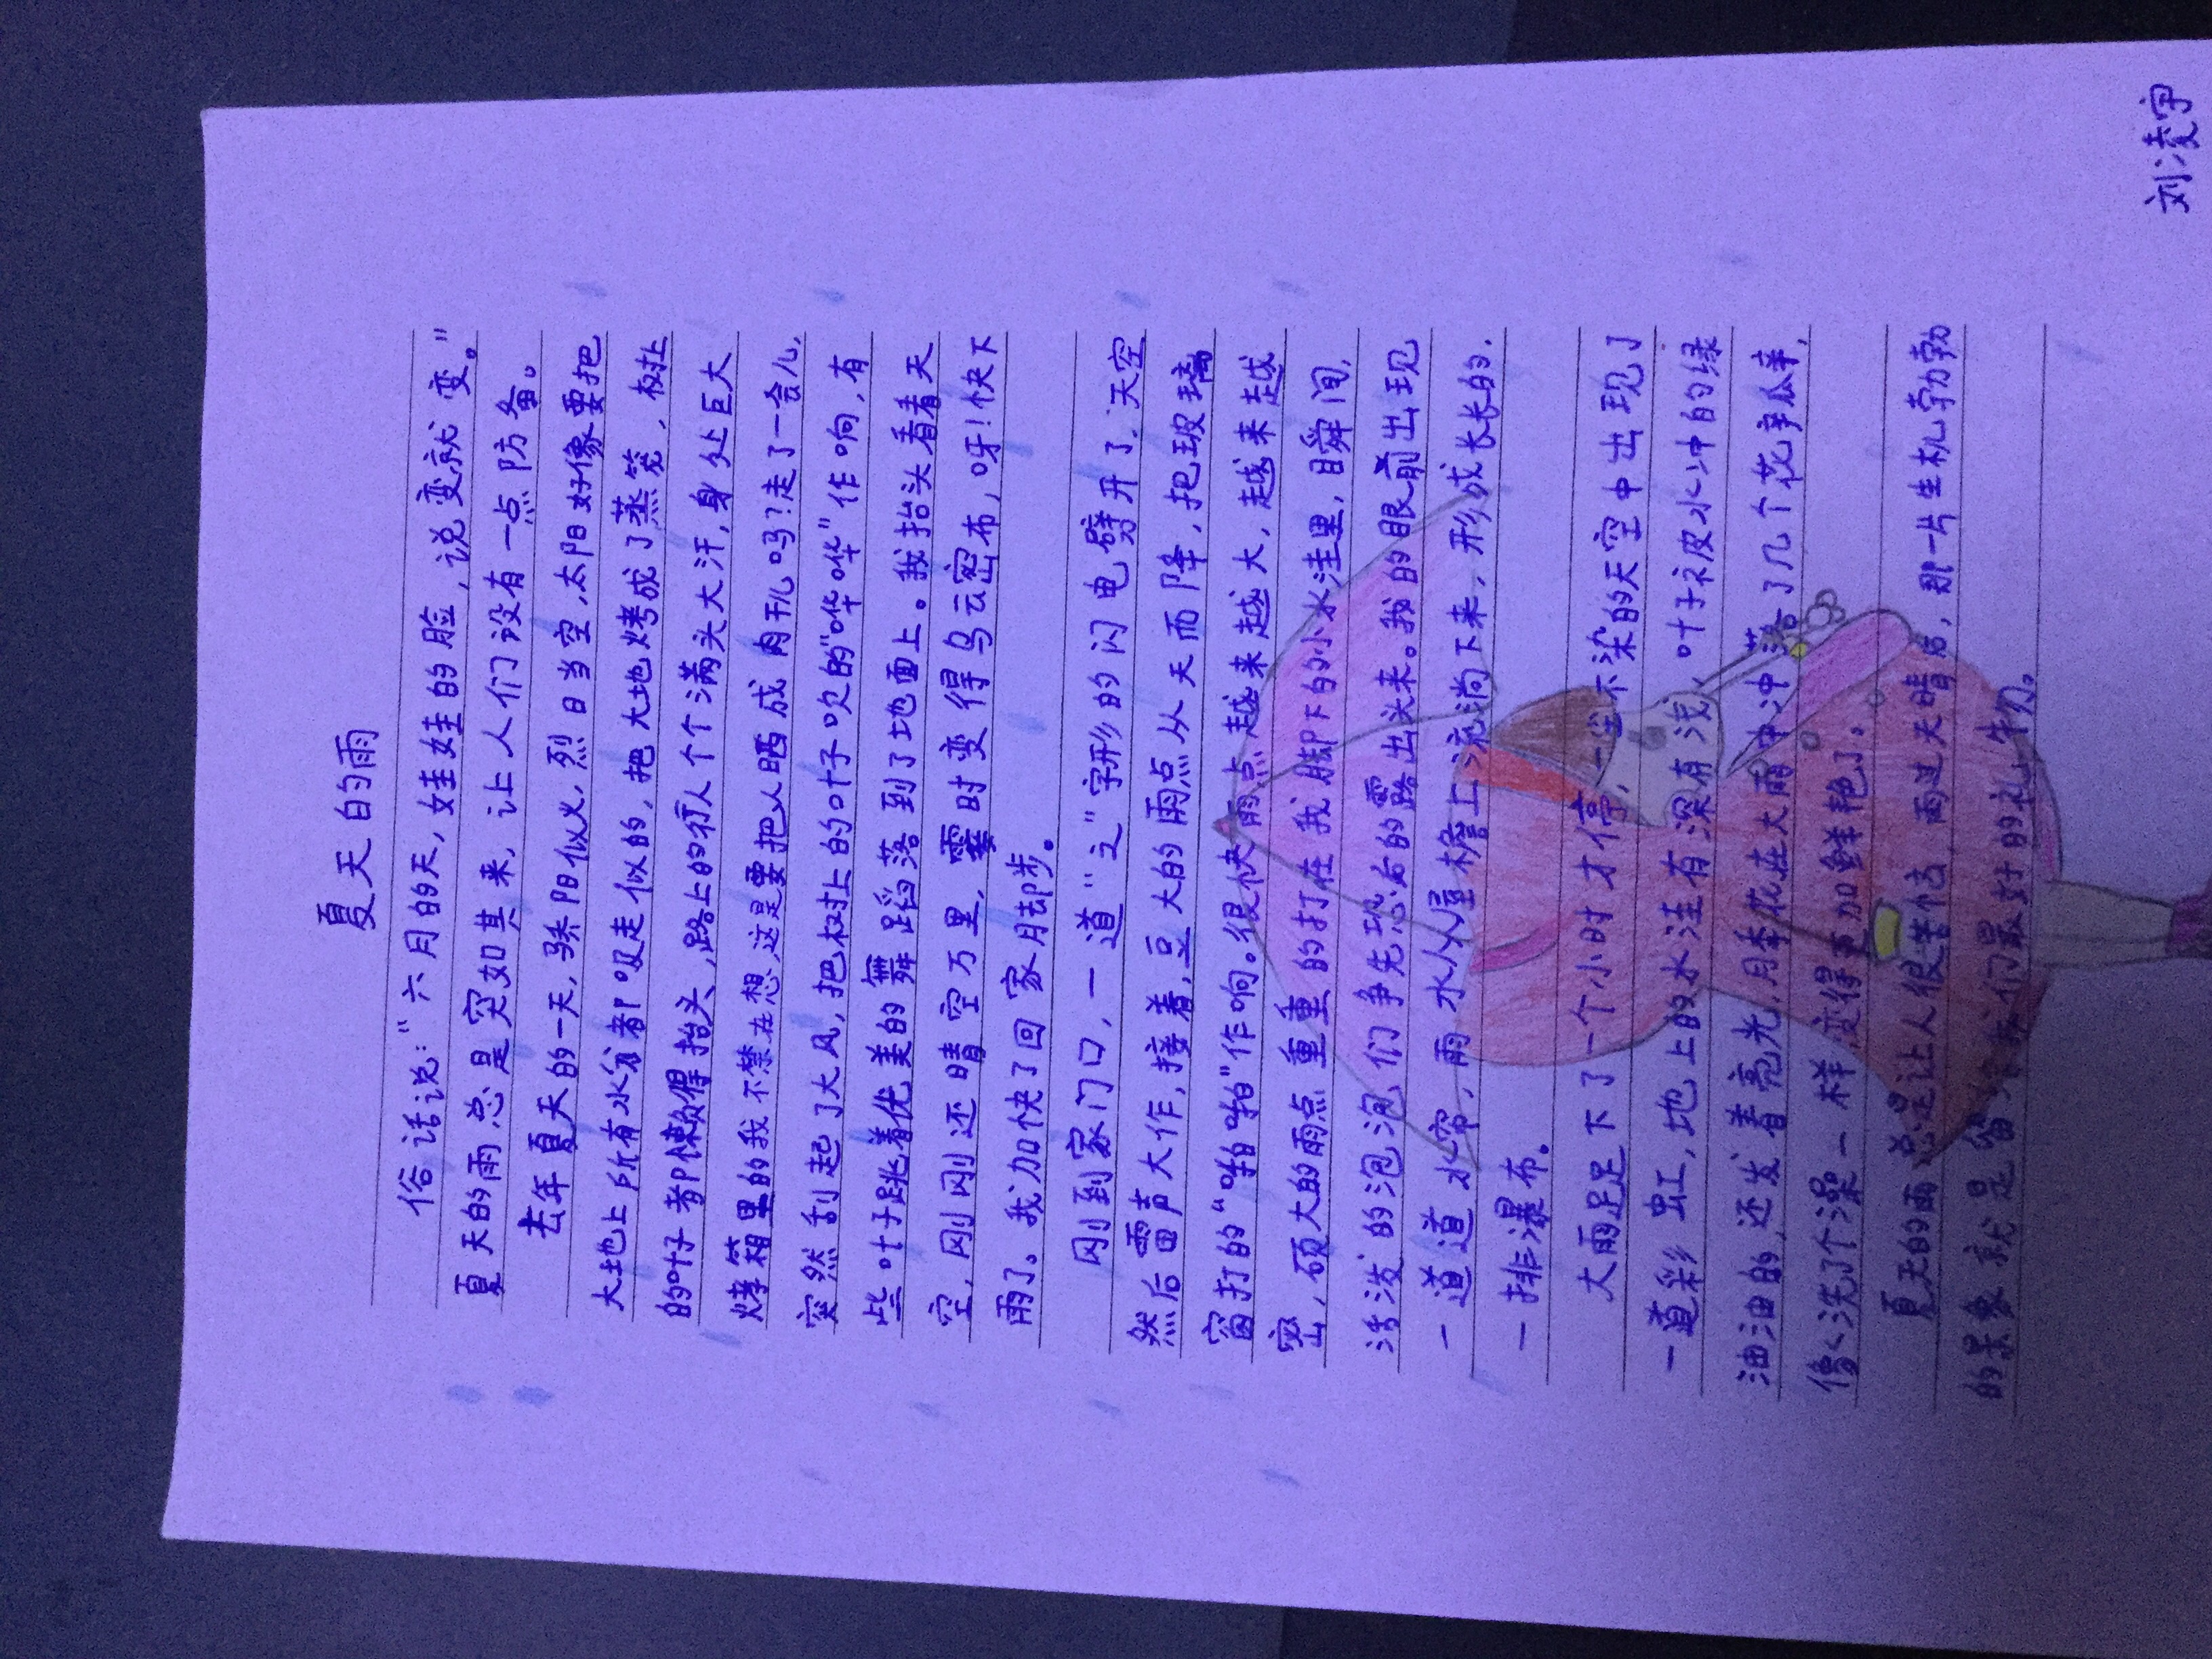 夏天的雨
俗话说:“六月的天,娃娃的脸,说变就变。”
夏天的雨总是突如其来,让人们没有一点防备。
去年夏天的一天,骄阳似火,烈日当空,太阳好像要把
大地上所有水分都吸走似的,把大地烤成了蒸笼,树上
的叶子都懒得抬头,路上的行人个个满头大汗,身处巨大
烤箱里的我不禁在想,这是要把人晒成肉干儿吗?走了一会儿,
突然刮起了大风,把树上的叶子吹的“哗哗”作响,有
些叶子跳着优美的舞蹈落到了地面上。我抬头看看天
空,刚刚还晴空万里,霎时变得乌云密布,呀!快下
雨了。我加快了回家脚步。
刚到家门口,一道“之”字形的闪电劈开了天空
然后雷声大作,接着,豆大的雨点从天而降,把玻璃
窗打的“啪啪”作响。很快雨点越来越大,越来越
密,硕大的雨点重重的打在我脚下的小水洼里,瞬间,
活泼的泡泡们争先恐后的露出头来。我的眼前出现
一道道水帘,雨水从屋檐上流淌下来,形成长长的,
一排瀑布。
大雨足足下了一个小时才停,一尘不染的天空中出现了
一道彩虹,地上的水洼有深有浅,叶子被水冲的绿
油油的,还发着亮光,月季花在大雨中冲落了几个花辛瓜辛,
像人洗了个澡一样变得更加鲜艳了。
夏天的雨总是让人很苦恼,雨过天晴后,那一片生机勃勃
的景象就是留给我们最好的礼物。
刘凌宇